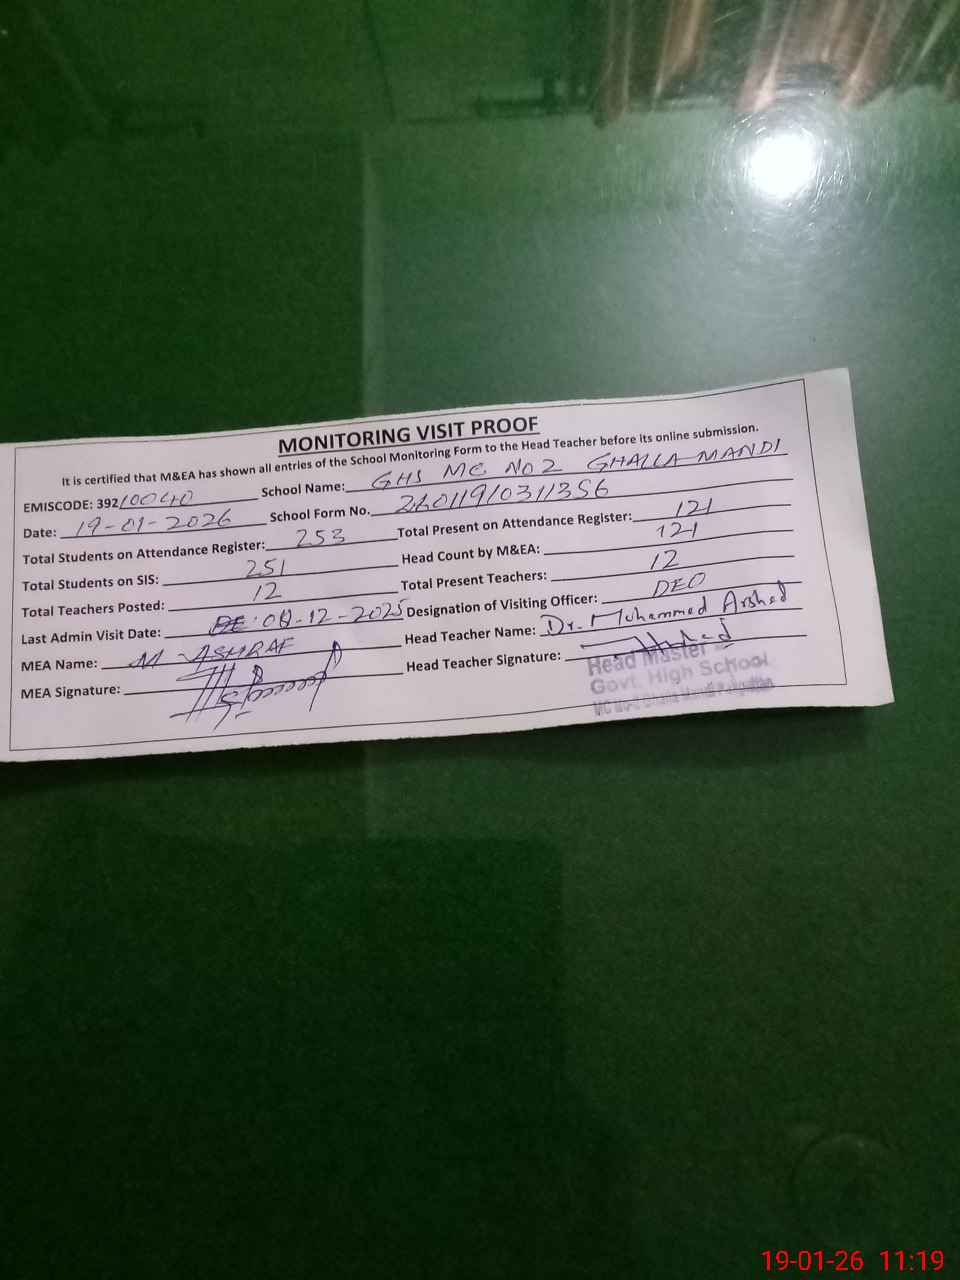 MONITORING VISIT PROOF
It is certified that M&EA has shown all entries of the School Monitoring Form to the Head Teacher before its online submission.
EMISCODE: 39210040 School Name: GHS MC NO 2 GHALLA MANDI
Date: 19-01-2026 School Form No. 26011910311356
Total Students on Attendance Register: 253 Total Present on Attendance Register: 121
Total Students on SIS: 251 Head Count by M&EA: 121
Total Teachers Posted: 12 Total Present Teachers: 12
Last Admin Visit Date: -12-2025 Designation of Visiting Officer: DEO
MEA Name: M ASHRAF Head Teacher Name: Dr. Mohammad Arshad
MEA Signature: Head Teacher Signature:
Head Master
Govt. High School
19-01-26 11:19